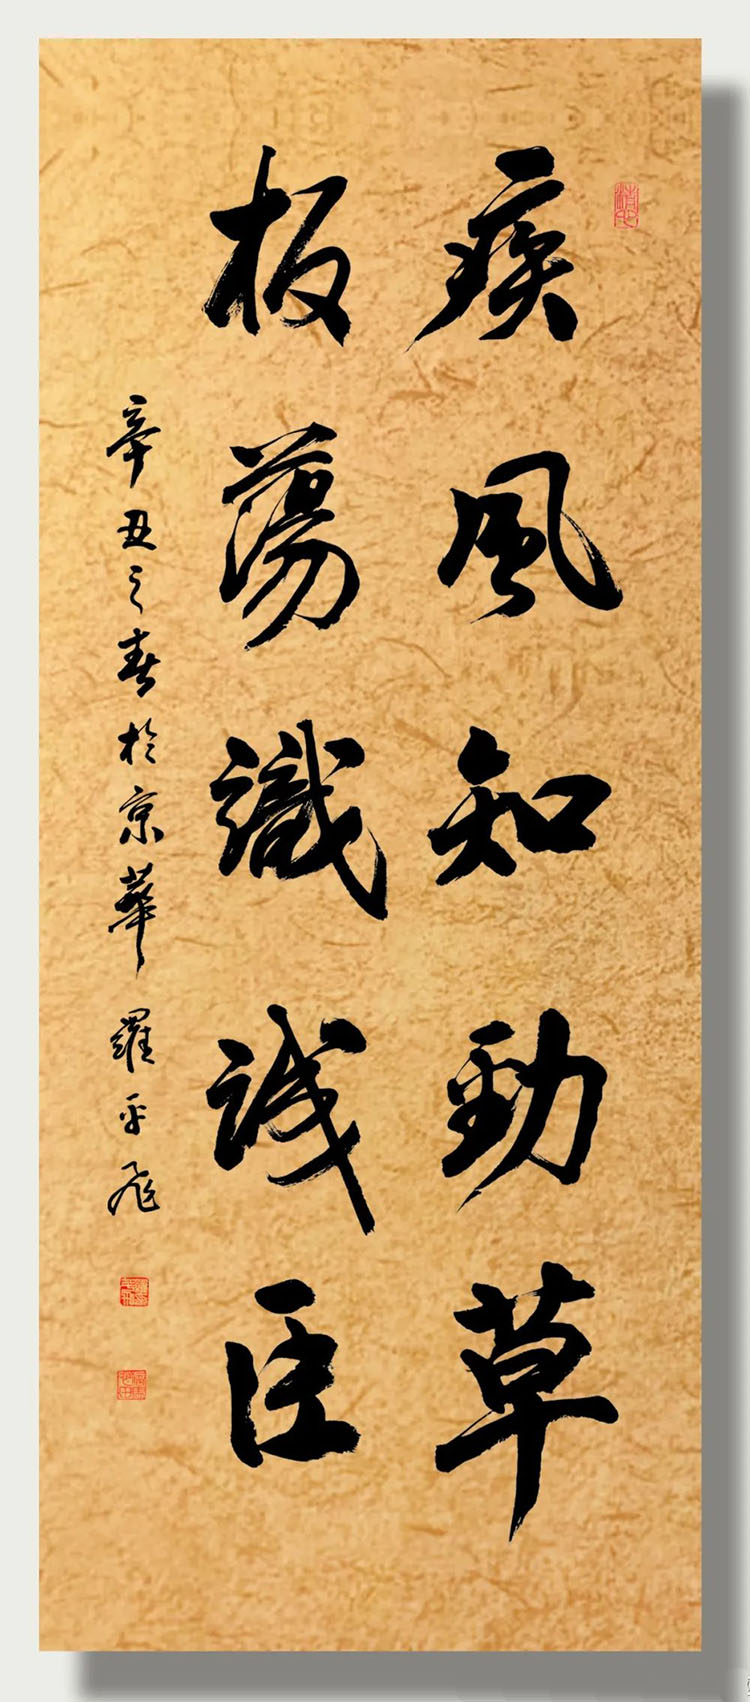 疾風知勁草
板蕩識誠臣
辛丑之春於京華 羅平飛